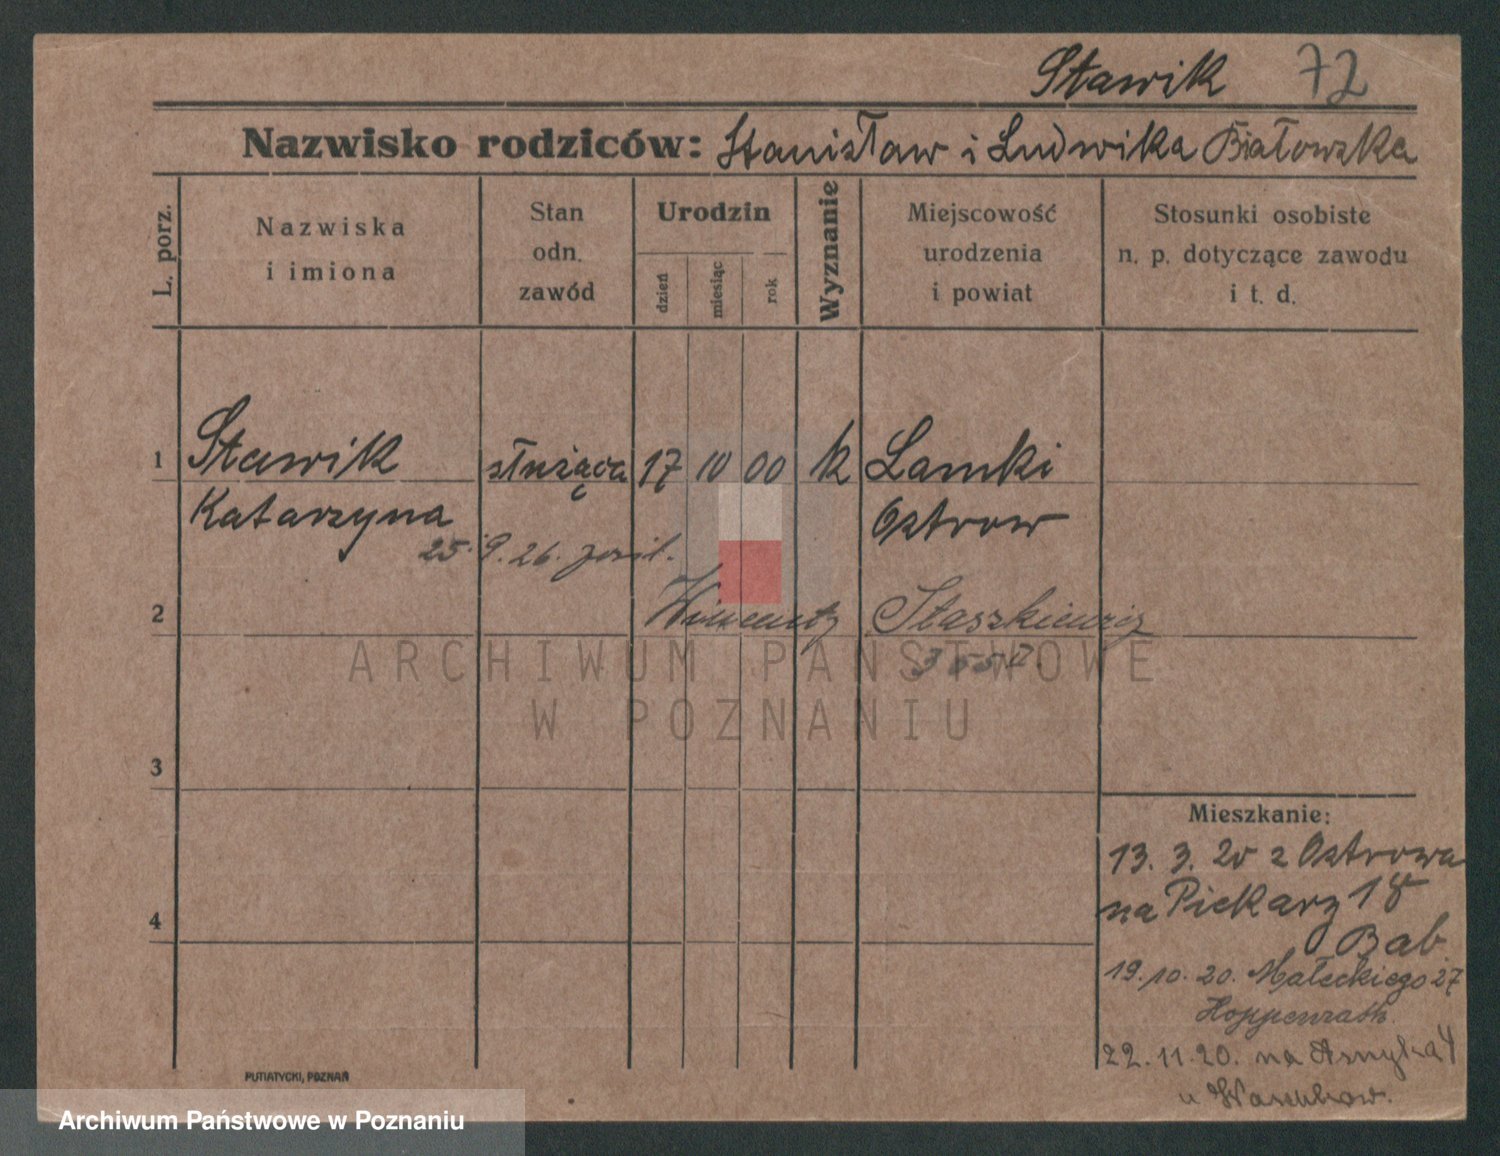 Stawik 72
Nazwisko rodziców: Stanisław i Ludwika Białowska
L. porz.
Nazwiska
i imiona
Stan
odn.
zawód
Urodzin
dzień
miesiąc
rok
Wyznanie
Miejscowość
urodzenia
i powiat
Stosunki osobiste
n. p. dotyczące zawodu
i t. d.
1 Stawik służąca 17 10 00 k Lamki
Katarzyna Ostrow
25. 9. 26.
2 Wincenty Staszkiewicz
ARCHIWUM PAŃSTWOWE
W POZNANIU
3
Mieszkanie:
13. 3. 20 z Ostrowa
na Piekary 18
4
Bab
19. 10. 20. Małeckiego 27
Hoppenrath
22. 11. 20. na Asnyka 4
u
PUTIATYCKI, POZNAŃ
Archiwum Państwowe w Poznaniu